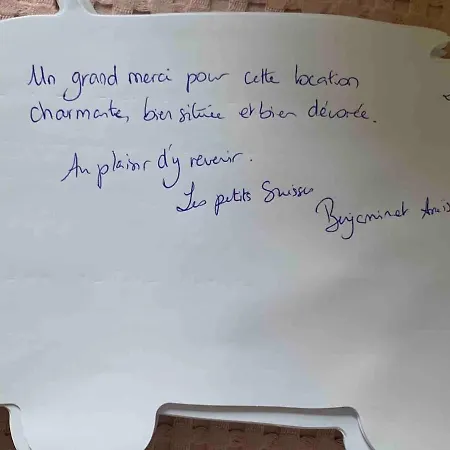 Un grand merci pour cette location
charmante, bien située et bien décorée.
Au plaisir d'y revenir.
Les petits Suisses
Benjamin et